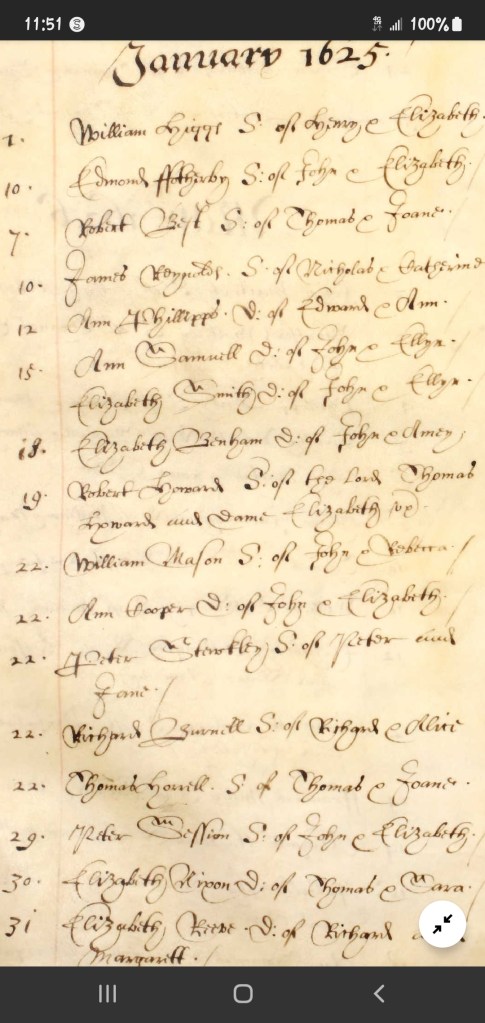 11:51 S 100%
January 1625.
1. William Higgs S: of Henry & Elizabeth.
10. Edmond ffotherby S: of John & Elizabeth.
7. Robert Best S: of Thomas & Joane.
10. James Reynolds. S: of Nicholas & Catherine
12 Ann Phillipps. D: of Edward & Ann.
15. Ann Samuell D: of John & Ellyn.
Elizabeth Smith D: of John & Ellyn.
18. Elizabeth Benham D: of John & Amey
19. Robert Howard S: of the Lord Thomas
Howard and Dame Elizabeth ux.
22. William Mason S: of John & Rebecca.
22. Ann Cooper D: of John & Elizabeth.
22. Peter Stewkley S: of Peter and
Jane.
22. Richard Burnell S: of Richard & Alice
22. Thomas Horrell. S of Thomas & Joane.
29. Peter Session S: of John & Elizabeth.
30. Elizabeth Nixon D: of Thomas & Sara.
31 Elizabeth Reeve. D: of Richard
Margarett.